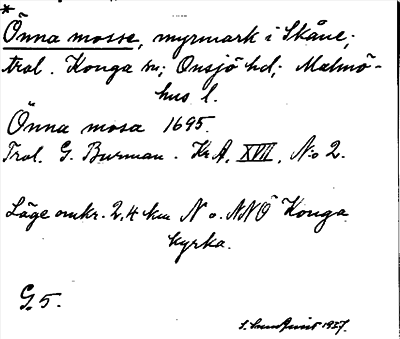 *
Önna mosse, myrmark i Skåne;
trol. Konga sn; Onsjö hd; Malmö-
hus l.
Önna mosa 1695.
Trol. G. Burman. Kr.A. XVII, N:o 2.
Läge omkr. 2,4 km N o. NNÖ Konga
kyrka.
G. 5.
1927.